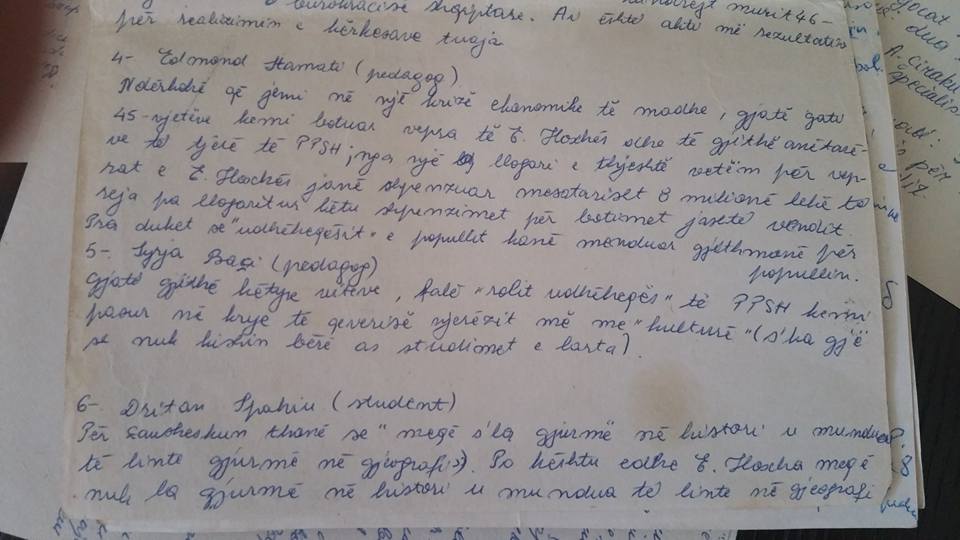 e burokracisë shqiptare. Ai është akti më rezultativ
për realizimin e kërkesave tuaja
4- Edmond Hamati (pedagog)
Ndërkohë që jemi në një krizë ekonomike të madhe, gjatë gati
45-vjetëve kemi botuar vepra të E. Hoxhës edhe të gjithë anëtarë-
ve të tjerë të PPSH; nga një llogari e thjeshtë vetëm për vep-
rat e E. Hoxhës janë shpenzuar mesatarisht 8 milionë lekë të
reja pa llogaritur këtu shpenzimet për botimet jashtë vendit.
Pra duket se "udhëheqësit" e popullit kanë menduar gjithmonë për
popullin.
5- Syrja Baqi (pedagog)
Gjatë gjithë këtyre viteve, falë "rolit udhëheqës" të PPSH kemi
pasur në krye të qeverisë njerëzit më me "kulturë" (s'ka gjë
se nuk kishin bërë as studimet e larta)
6- Dritan Spahiu (student)
Për Çausheskun thanë se "meqë s'la gjurmë në histori u mundua
të linte gjurmë në gjeografi". Po kështu edhe E. Hoxha meqë
nuk la gjurmë në histori u mundua të linte në gjeografi